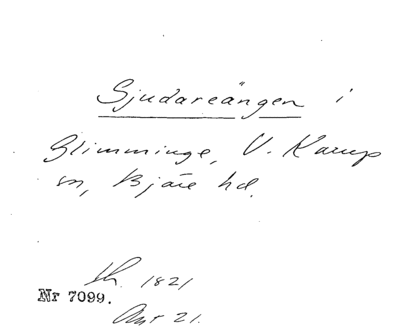 Sjudareängen i
Glimminge, V. Karup
sn, Bjäre hd.
1821
Nr 7099.
21.